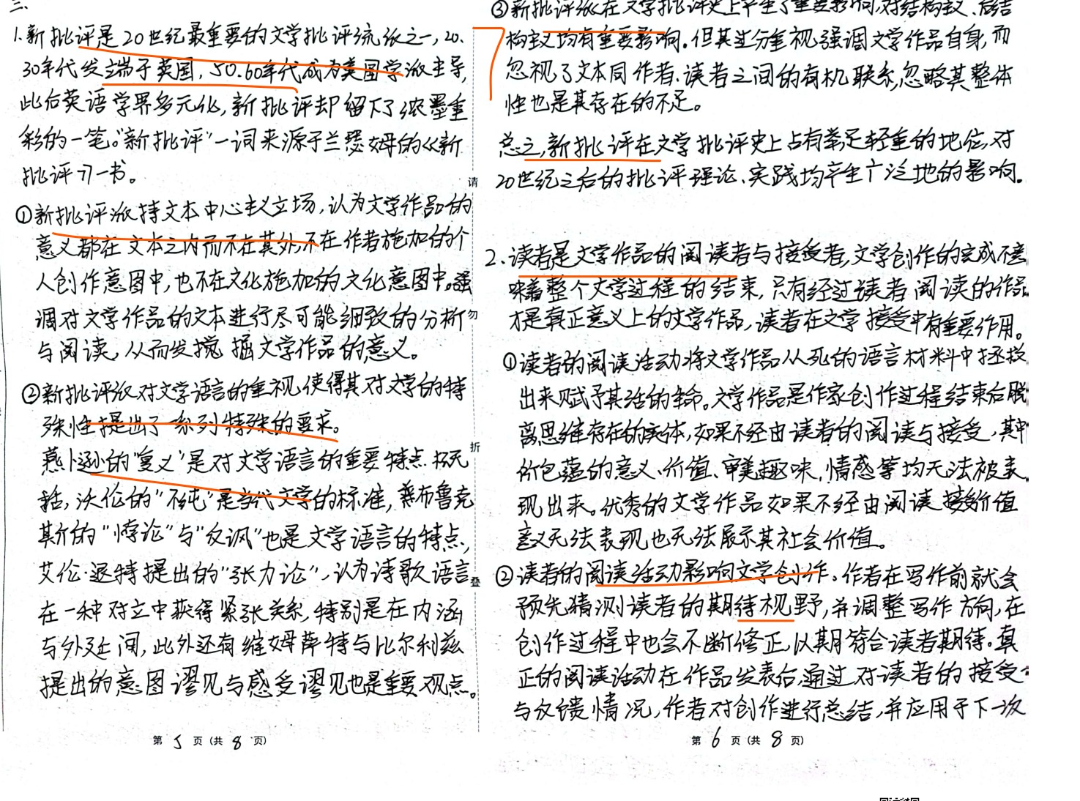 三、
1.新批评是20世纪最重要的文学批评流派之一,20、
30年代发端于英国,50.60年代成为美国学派主导,
此后英语学界多元化,新批评却留下了浓墨重
彩的一笔。"新批评"一词来源于兰瑟姆的《新
批评》一书。
①新批评派持文本中心主义立场,认为文学作品的
意义都在文本之内而不在其外,不在作者施加的个
人创作意图中,也不在文化施加的文化意图中,强
调对文学作品的文本进行尽可能细致的分析
与阅读,从而发掘文学作品的意义。
②新批评派对文学语言的重视,使得其对文学的特
殊性提出了系列特殊的要求。
燕卜逊的"复义"是对文学语言的重要特点
沃伦的"不纯"是当代文学的标准,布鲁克
斯的"悖论"与"反讽"也是文学语言的特点,
艾伦·退特提出的"张力论",认为诗歌语言
在一种对立中获得紧张关系,特别是在内涵
与外延间,此外还有维姆萨特与比尔利兹
提出的意图谬见与感受谬见也是重要观点。
第5页(共8页)
请
勿
折
叠
③新批评派在文学批评史上产生了重要影响,对结构主义、后结
构主义均有重要影响。但其过分重视强调文学作品自身,而
忽视了文本同作者、读者之间的有机联系,忽略其整体
性也是其存在的不足。
总之,新批评在文学批评史上占有举足轻重的地位,对
20世纪之后的批评理论、实践均产生广泛地的影响。
7
2.读者是文学作品的阅读者与接受者,文学创作的完成不意
味着整个文学过程的结束,只有经过读者阅读的作品
才是真正意义上的文学作品,读者在文学接受中有重要作用。
①读者的阅读活动将文学作品从死的语言材料中拯救
出来赋予其活的生命。文学作品是作家创作过程结束后脱
离思维存在的实体,如果不经由读者的阅读与接受,其中
所包蕴的意义、价值、审美趣味,情感等均无法被表
现出来。优秀的文学作品如果不经由阅读接受价值
意义无法表现也无法展示其社会价值。
②读者的阅读活动影响文学创作。作者在写作前就会
预先猜测读者的期待视野,并调整写作方向,在
创作过程中也会不断修正,以期符合读者期待。真
正的阅读活动在作品发表后,通过对读者的接受
与反馈情况,作者对创作进行总结,并应用于下一次
第6页(共8页)